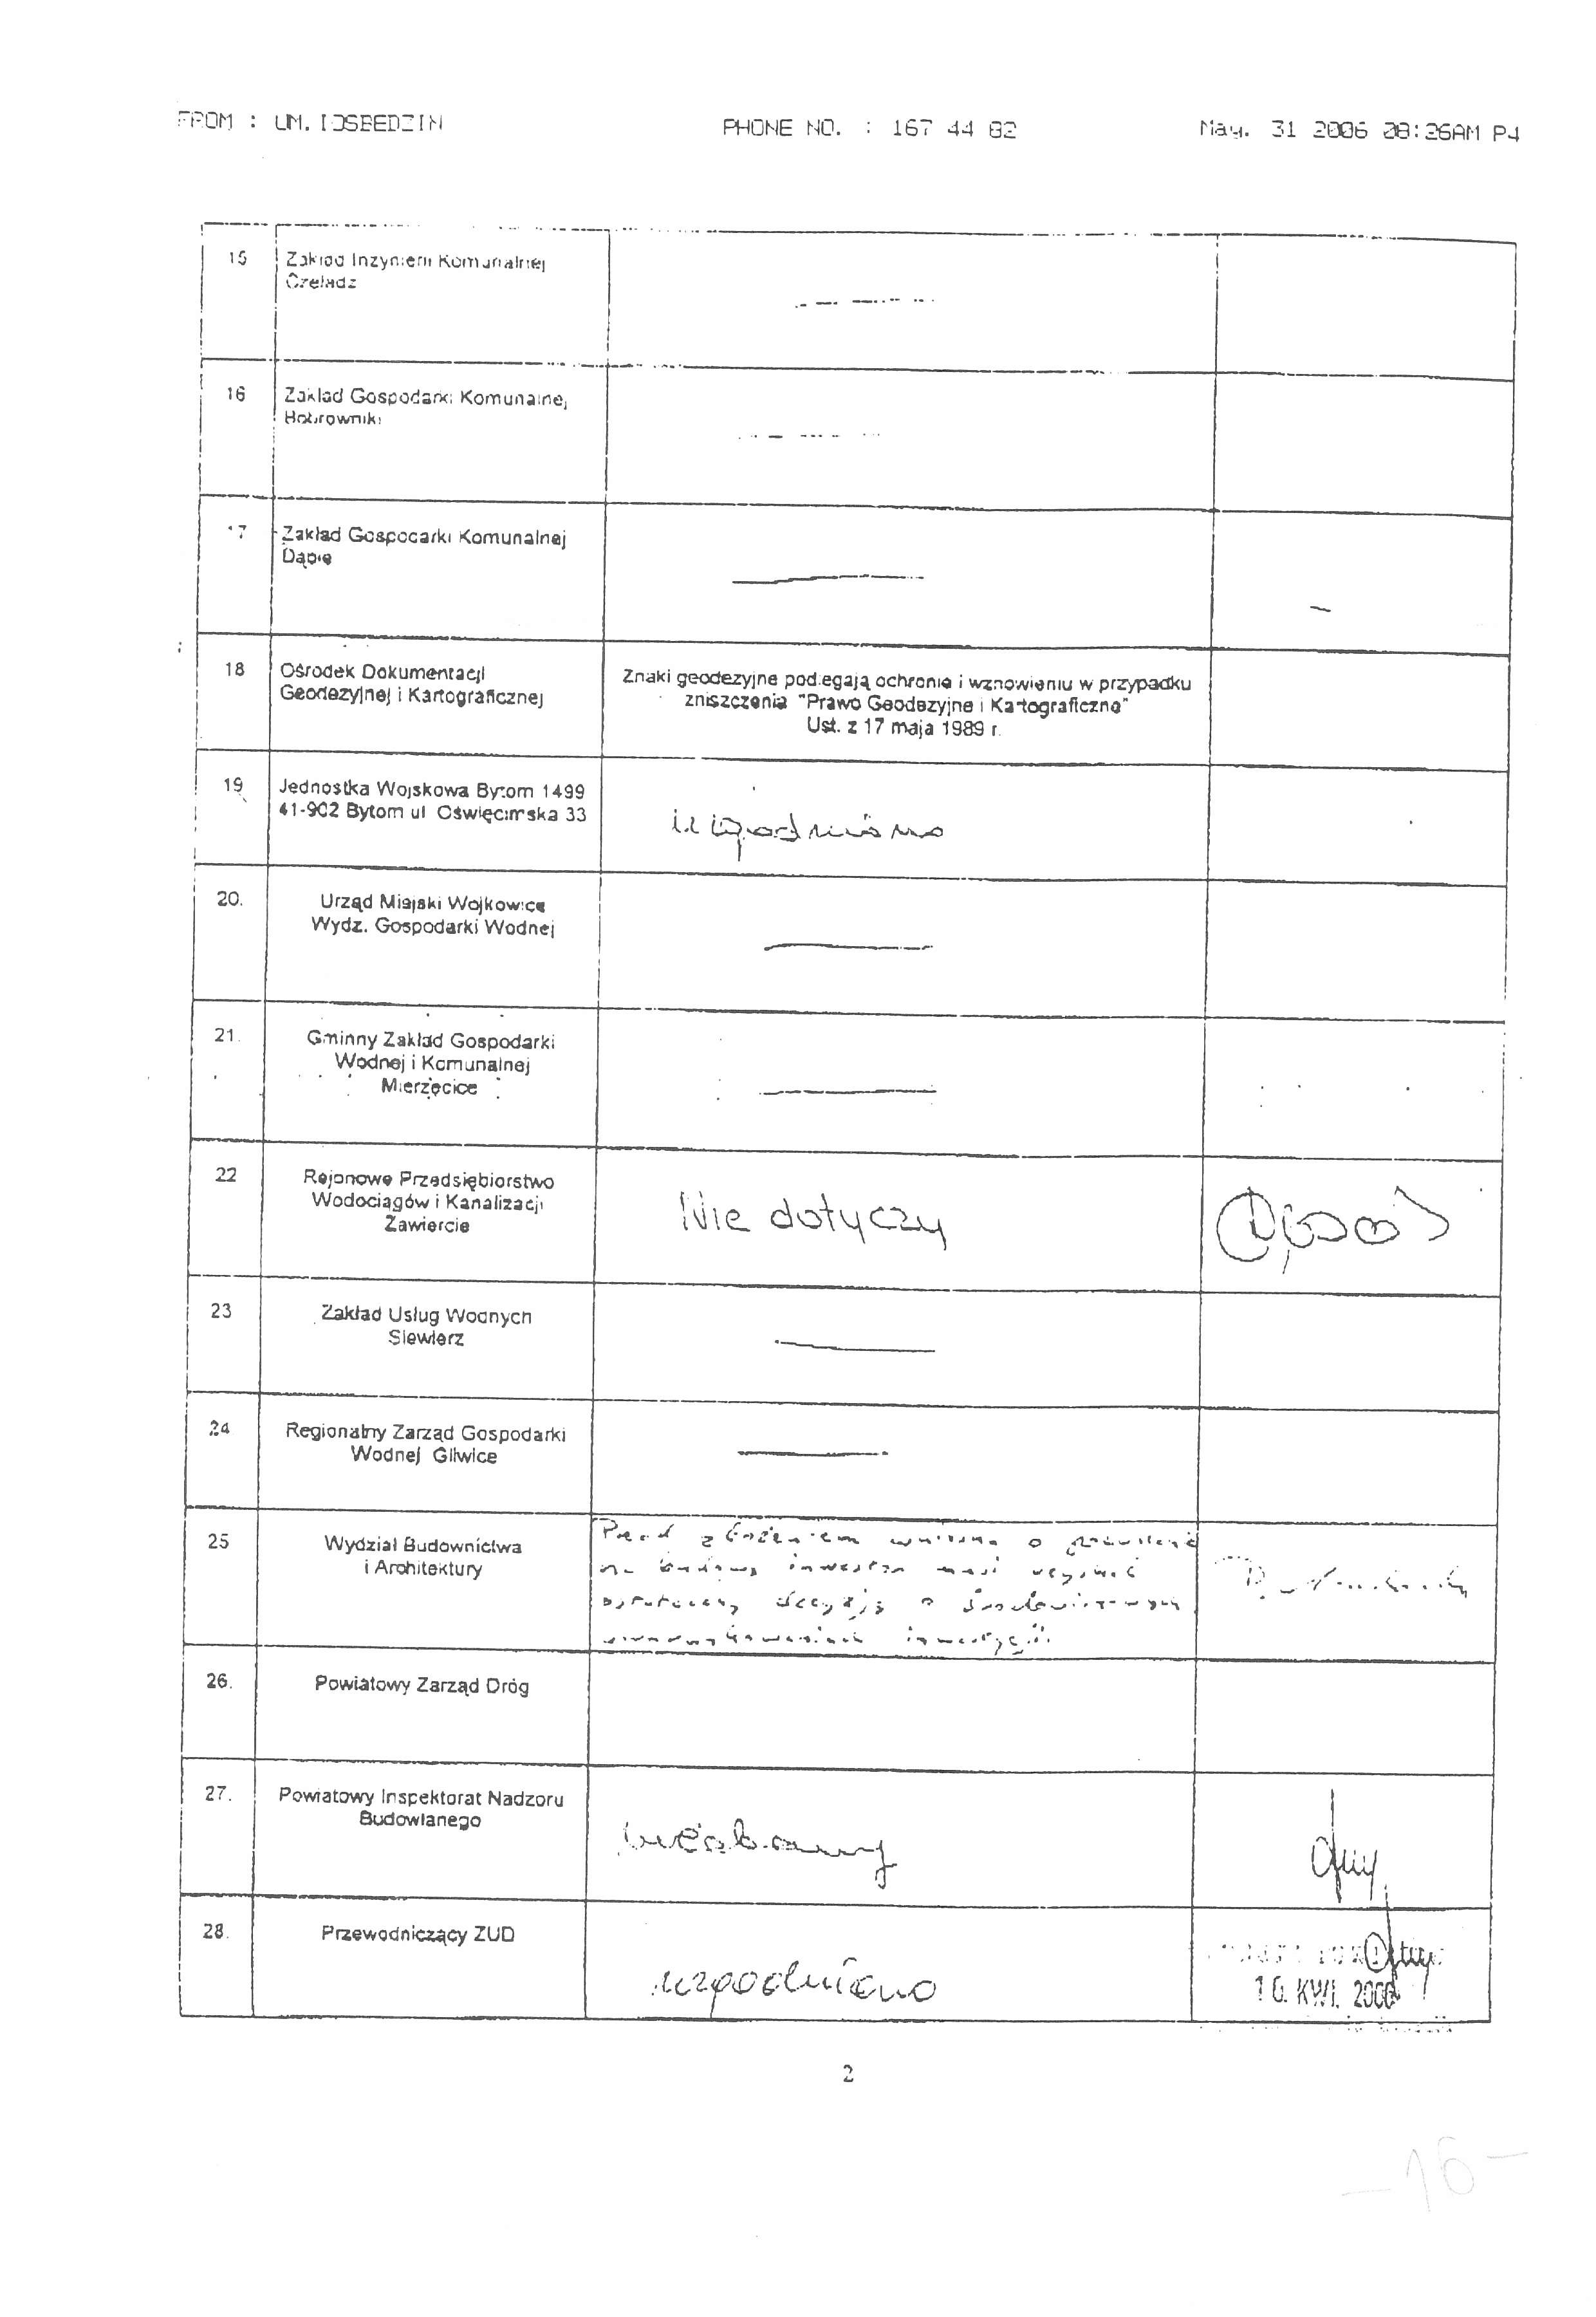 FROM : UM.IOSBEDZIN
PHONE NO. : 167 44 82
May. 31 2006 08:26AM P4
15 Zakład Inżynierii Komunalnej
Czeladz
16 Zakład Gospodarki Komunalnej
Bobrowniki
17 Zakład Gospodarki Komunalnej
Dąbie
18 Ośrodek Dokumentacji
Geodezyjnej i Kartograficznej
Znaki geodezyjne podlegają ochronie i wznowieniu w przypadku
zniszczenia "Prawo Geodezyjne i Kartograficzne"
Ust. z 17 maja 1989 r.
19 Jednostka Wojskowa Bytom 1499
41-902 Bytom ul Oświęcimska 33
uzgodniono
20. Urząd Miejski Wojkowice
Wydz. Gospodarki Wodnej
21. Gminny Zakład Gospodarki
Wodnej i Komunalnej
Mierzęcice
22 Rejonowe Przedsiębiorstwo
Wodociągów i Kanalizacji
Zawiercie
Nie dotyczy
23 Zakład Usług Wodnych
Siewierz
24 Regionalny Zarząd Gospodarki
Wodnej Gliwice
25 Wydział Budownictwa
i Architektury
Przed złożeniem wniosku o pozwolenie
na budowę inwestor musi uzyskać
ostateczną decyzję o środowiskowych
uwarunkowaniach inwestycji
26. Powiatowy Zarząd Dróg
27. Powiatowy Inspektorat Nadzoru
Budowlanego
28. Przewodniczący ZUD
uzgodniono
16. KWI. 2006
2
-16-